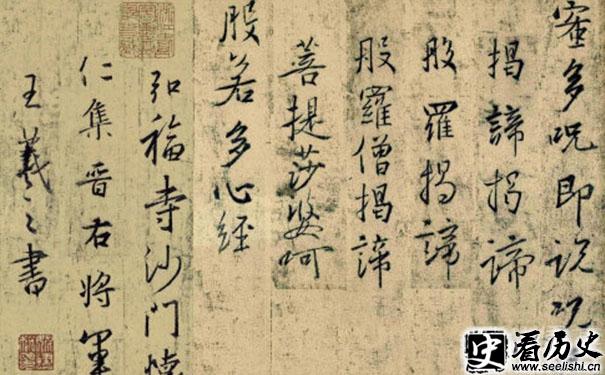 蜜多呪即說呪
揭諦揭諦
般羅揭諦
般羅僧揭諦
菩提莎婆呵
般若多心經
弘福寺沙門懷
仁集晉右將軍
王羲之書
史 看历史
www.seelishi.cn